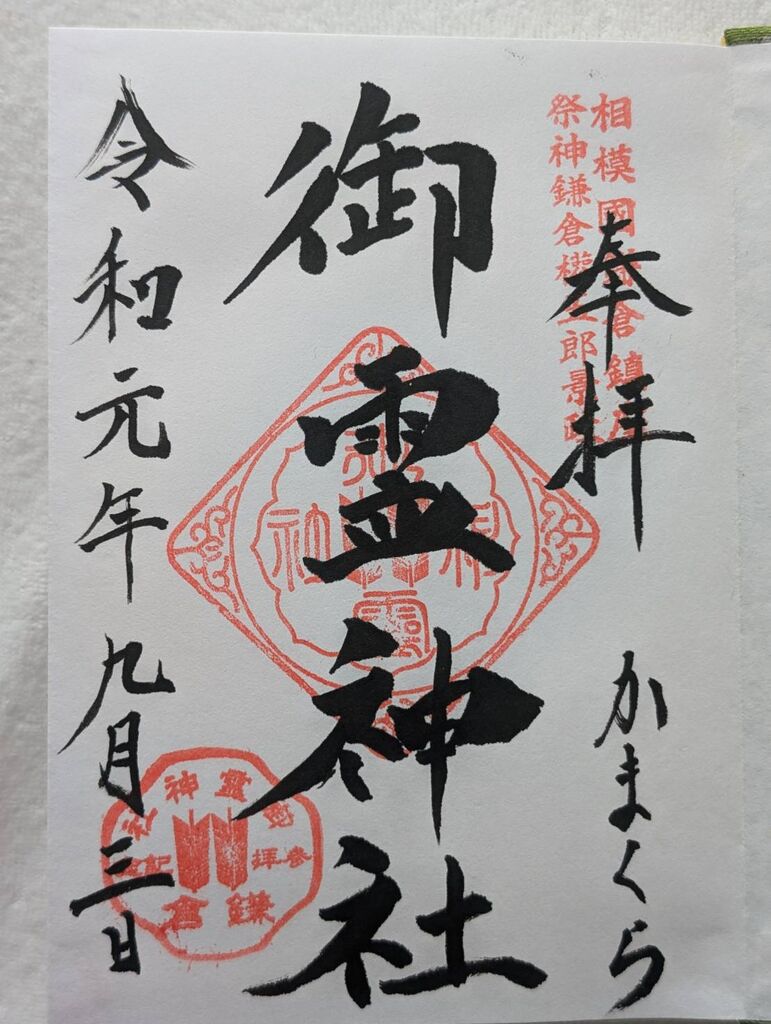 相模國鎌倉鎮座
祭神鎌倉権五郎景政
奉拝
かまくら
御霊神社
令和元年九月三日
御靈神社
参拝記念
鎌倉